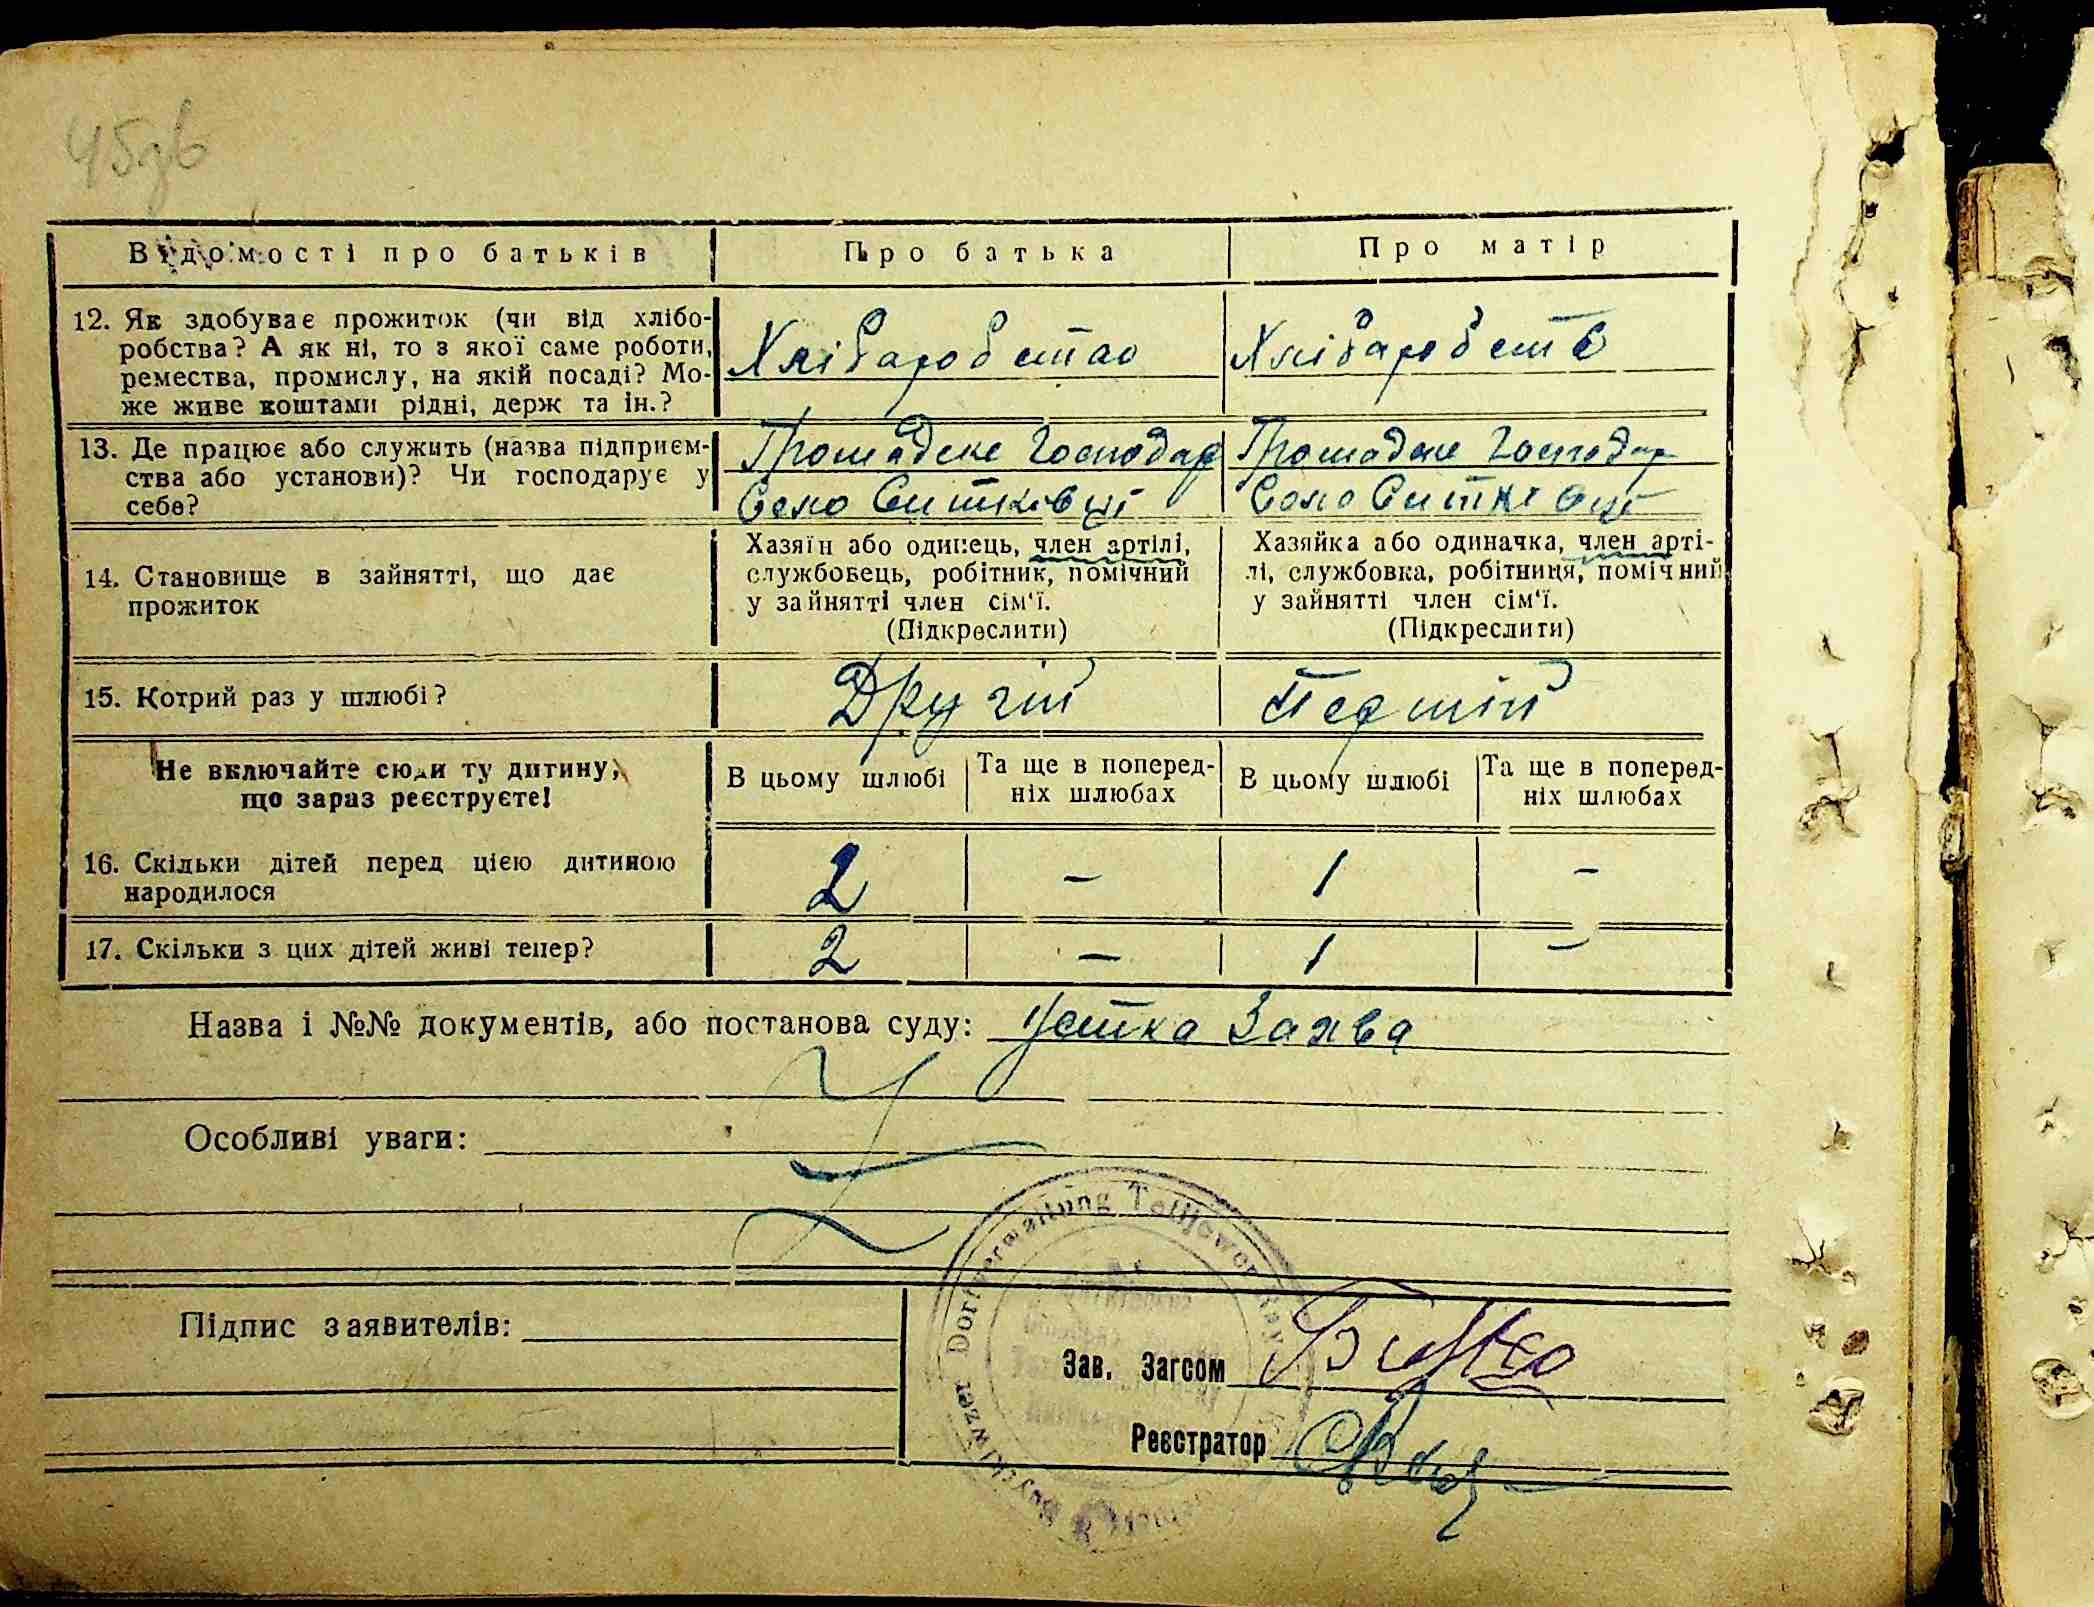 45зв
Відомості про батьків
Про батька
Про матір
12. Як здобуває прожиток (чи від хлібо-
робства? А як ні, то з якої саме роботи,
ремества, промислу, на якій посаді? Мо-
же живе коштами рідні, держ та ін.?
Хліборобство
Хліборобств
13. Де працює або служить (назва підприєм-
ства або установи)? Чи господарує у
себе?
Громадське Господар
Село Ситківці
Громадске Господар
Село Ситківці
14. Становище в зайнятті, що дає
прожиток
Хазяїн або одинець, член артілі,
службовець, робітник, помічний
у зайнятті член сім'ї.
(Підкреслити)
Хазяйка або одиначка, член арті-
лі, службовка, робітниця, помічний
у зайнятті член сім'ї.
(Підкреслити)
15. Котрий раз у шлюбі?
Другій
Першій
Не включайте сюди ту дитину,
що зараз реєструєте!
В цьому шлюбі
Та ще в поперед-
ніх шлюбах
В цьому шлюбі
Та ще в поперед-
ніх шлюбах
16. Скільки дітей перед цією дитиною
народилося
2 – 1 –
17. Скільки з цих дітей живі тепер?
2 – 1 –
Назва і №№ документів, або постанова суду: Устка Заява
Особливі уваги:
Dorfverwaltung
Підпис заявителів:
Зав. Загсом
Реєстратор